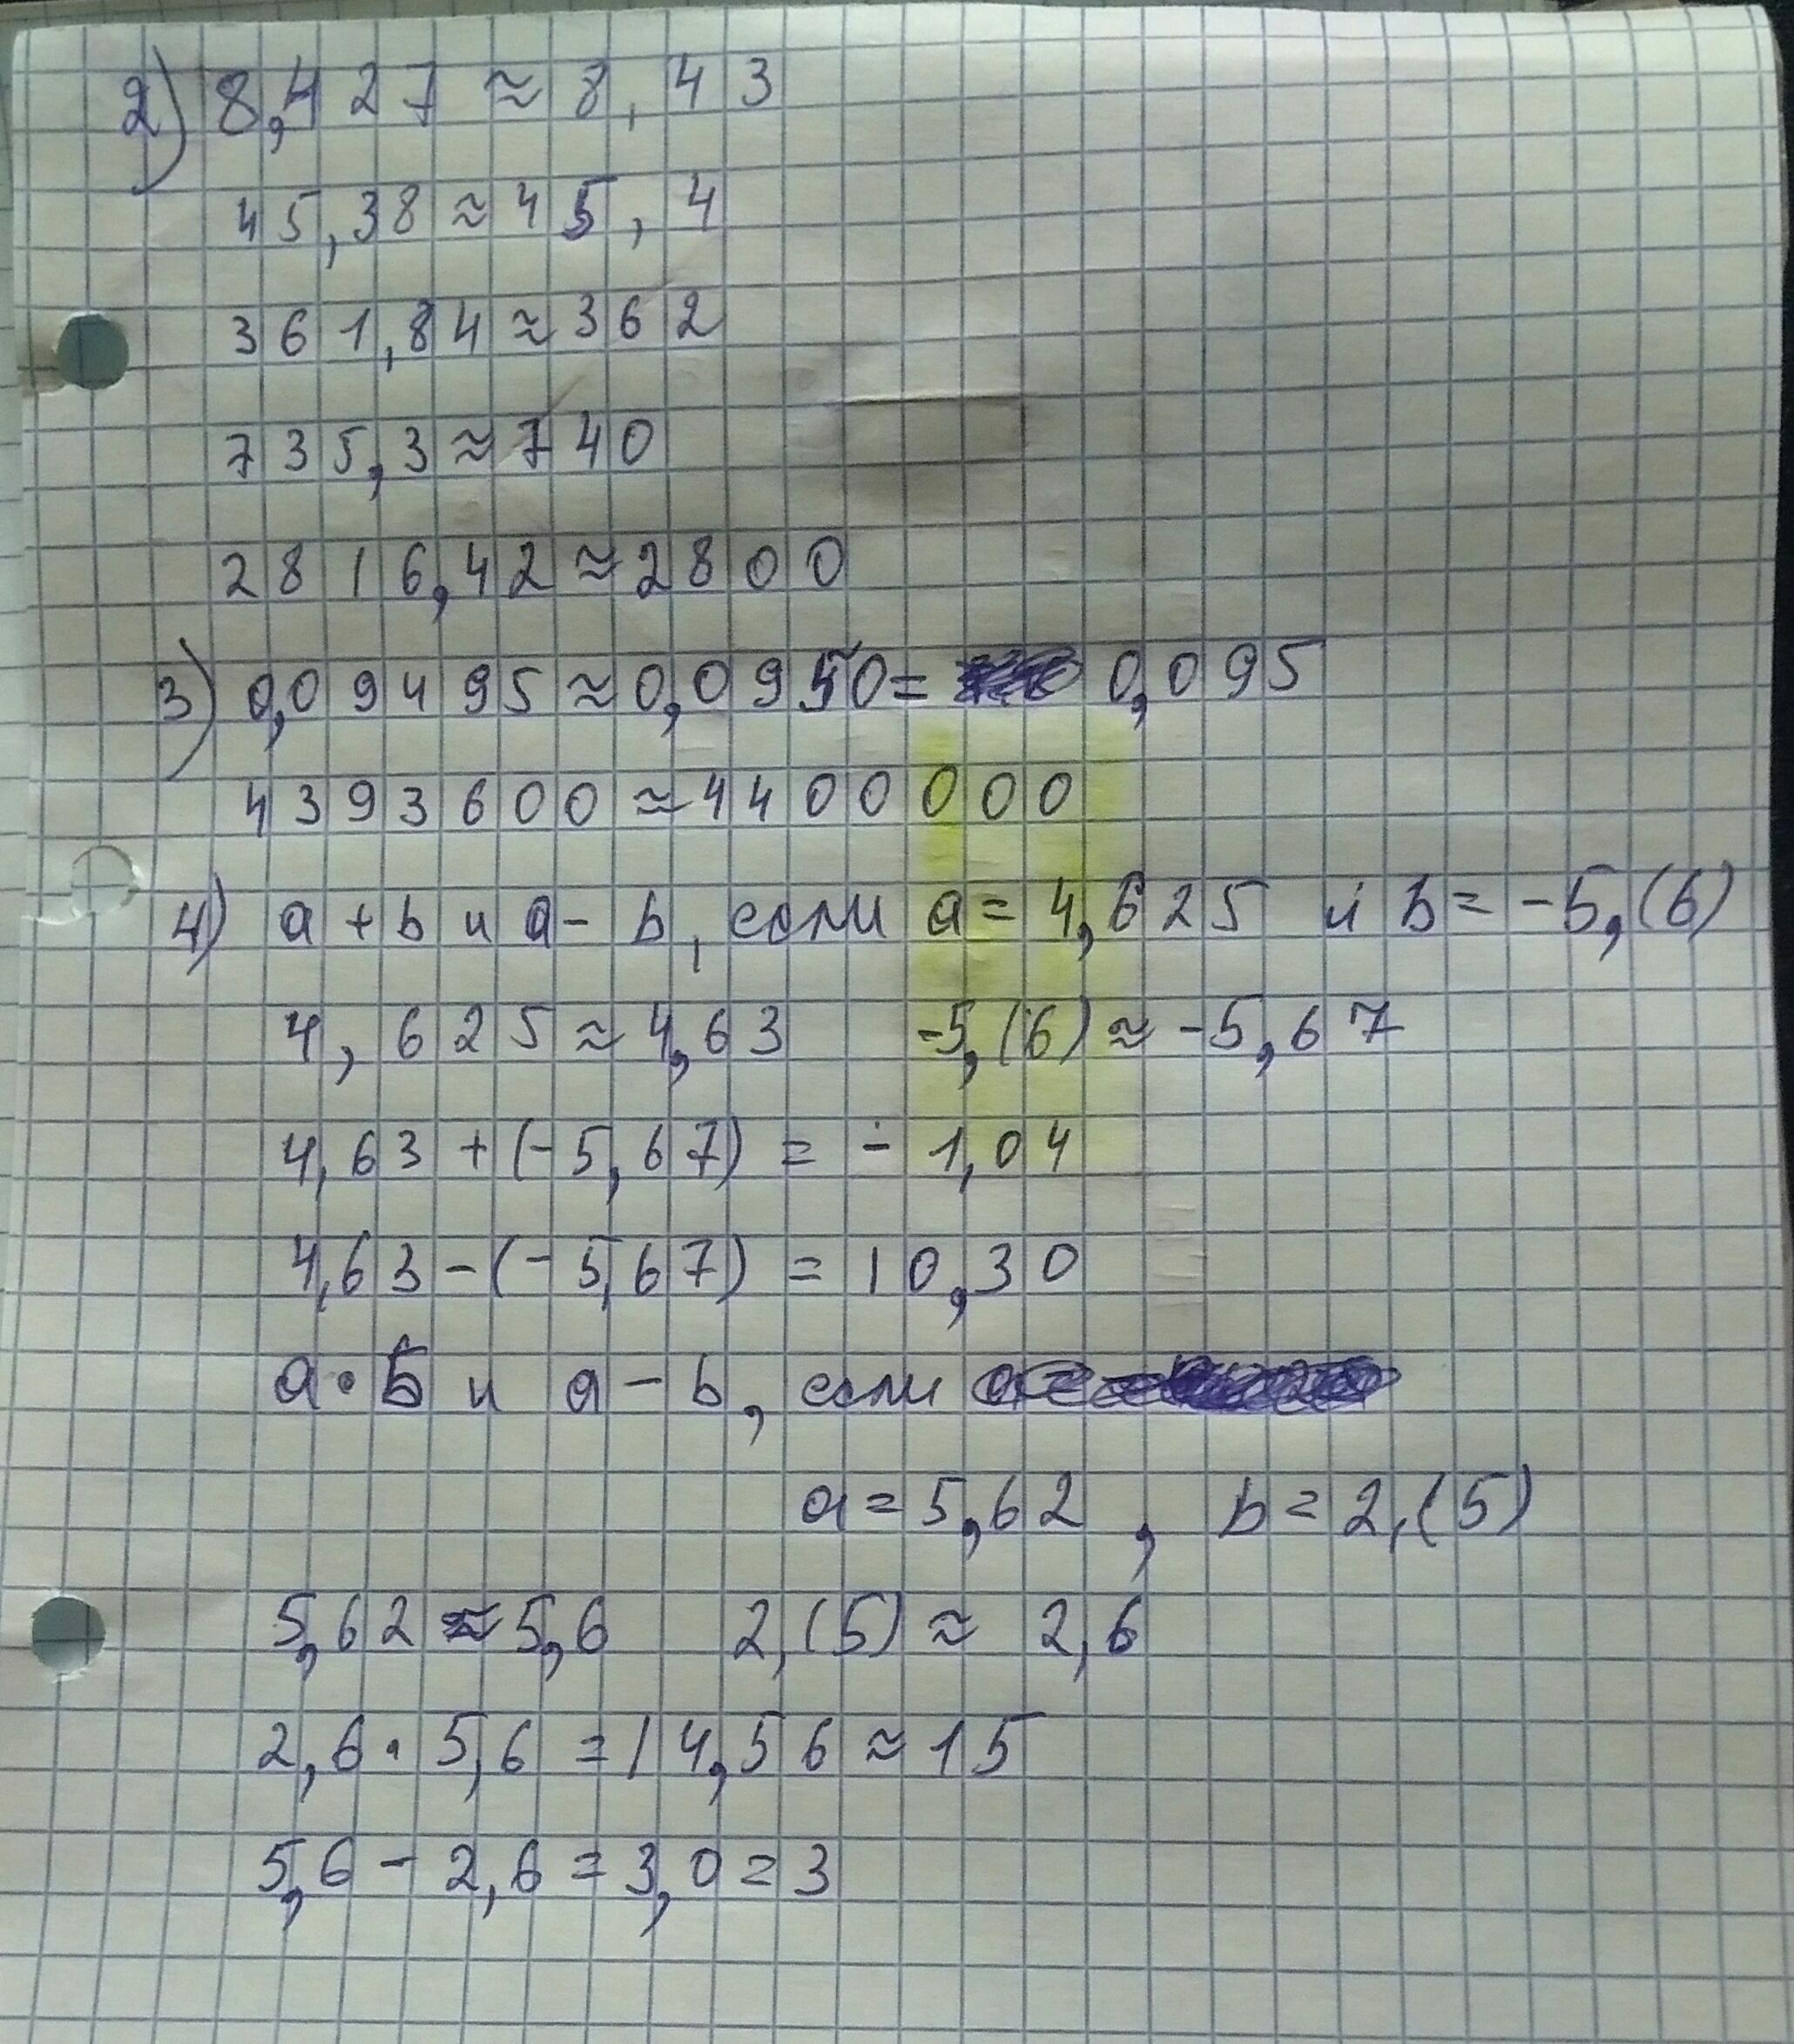 2) 8,427 ≈ 8,43
45,38 ≈ 45,4
361,84 ≈ 362
735,3 ≈ 740
2816,42 ≈ 2800
3) 0,09495 ≈ 0,0950 = 0,095
4393600 ≈ 4400000
4) a + b и a - b, если a = 4,625 и b = -5,(6)
4,625 ≈ 4,63 -5,(6) ≈ -5,67
4,63 + (-5,67) = - 1,04
4,63 - (-5,67) = 10,30
a · b и a - b, если
a = 5,62, b = 2,(5)
5,62 ≈ 5,6 2,(5) ≈ 2,6
2,6 · 5,6 = 14,56 ≈ 15
5,6 - 2,6 = 3,0 = 3